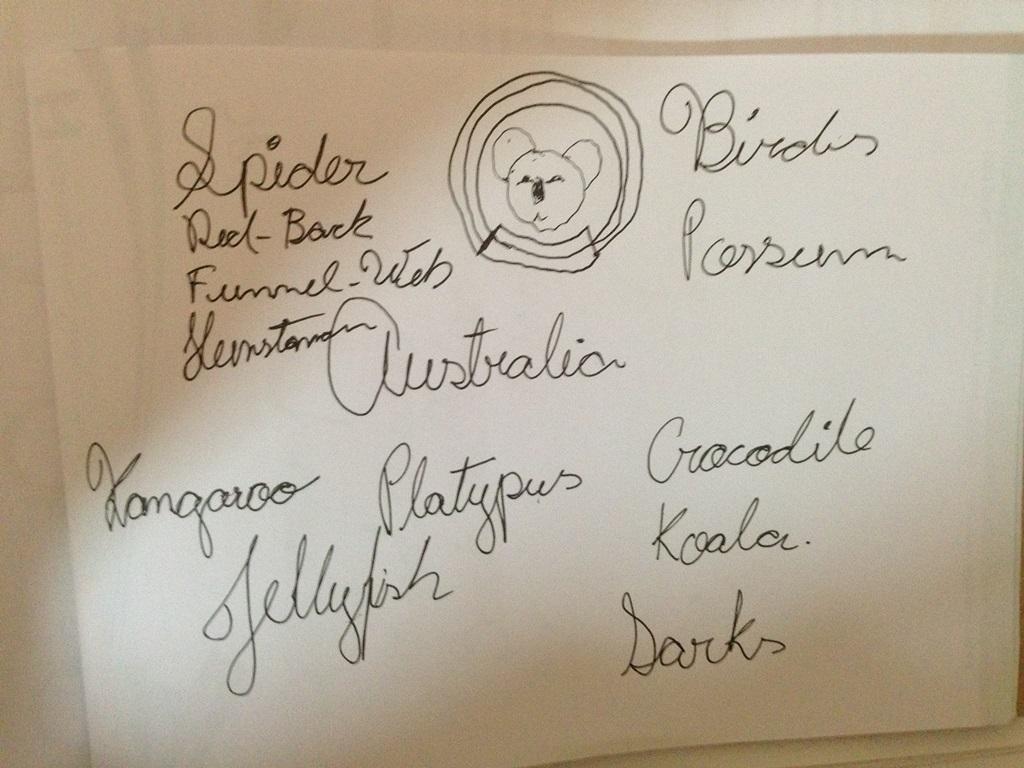 Spider
Red-Back
Funnel-Web
Hunstman
Birds
Possum
Australia
Kangaroo
Platypus
Crocodile
Jellyfish
Koala.
Sarks